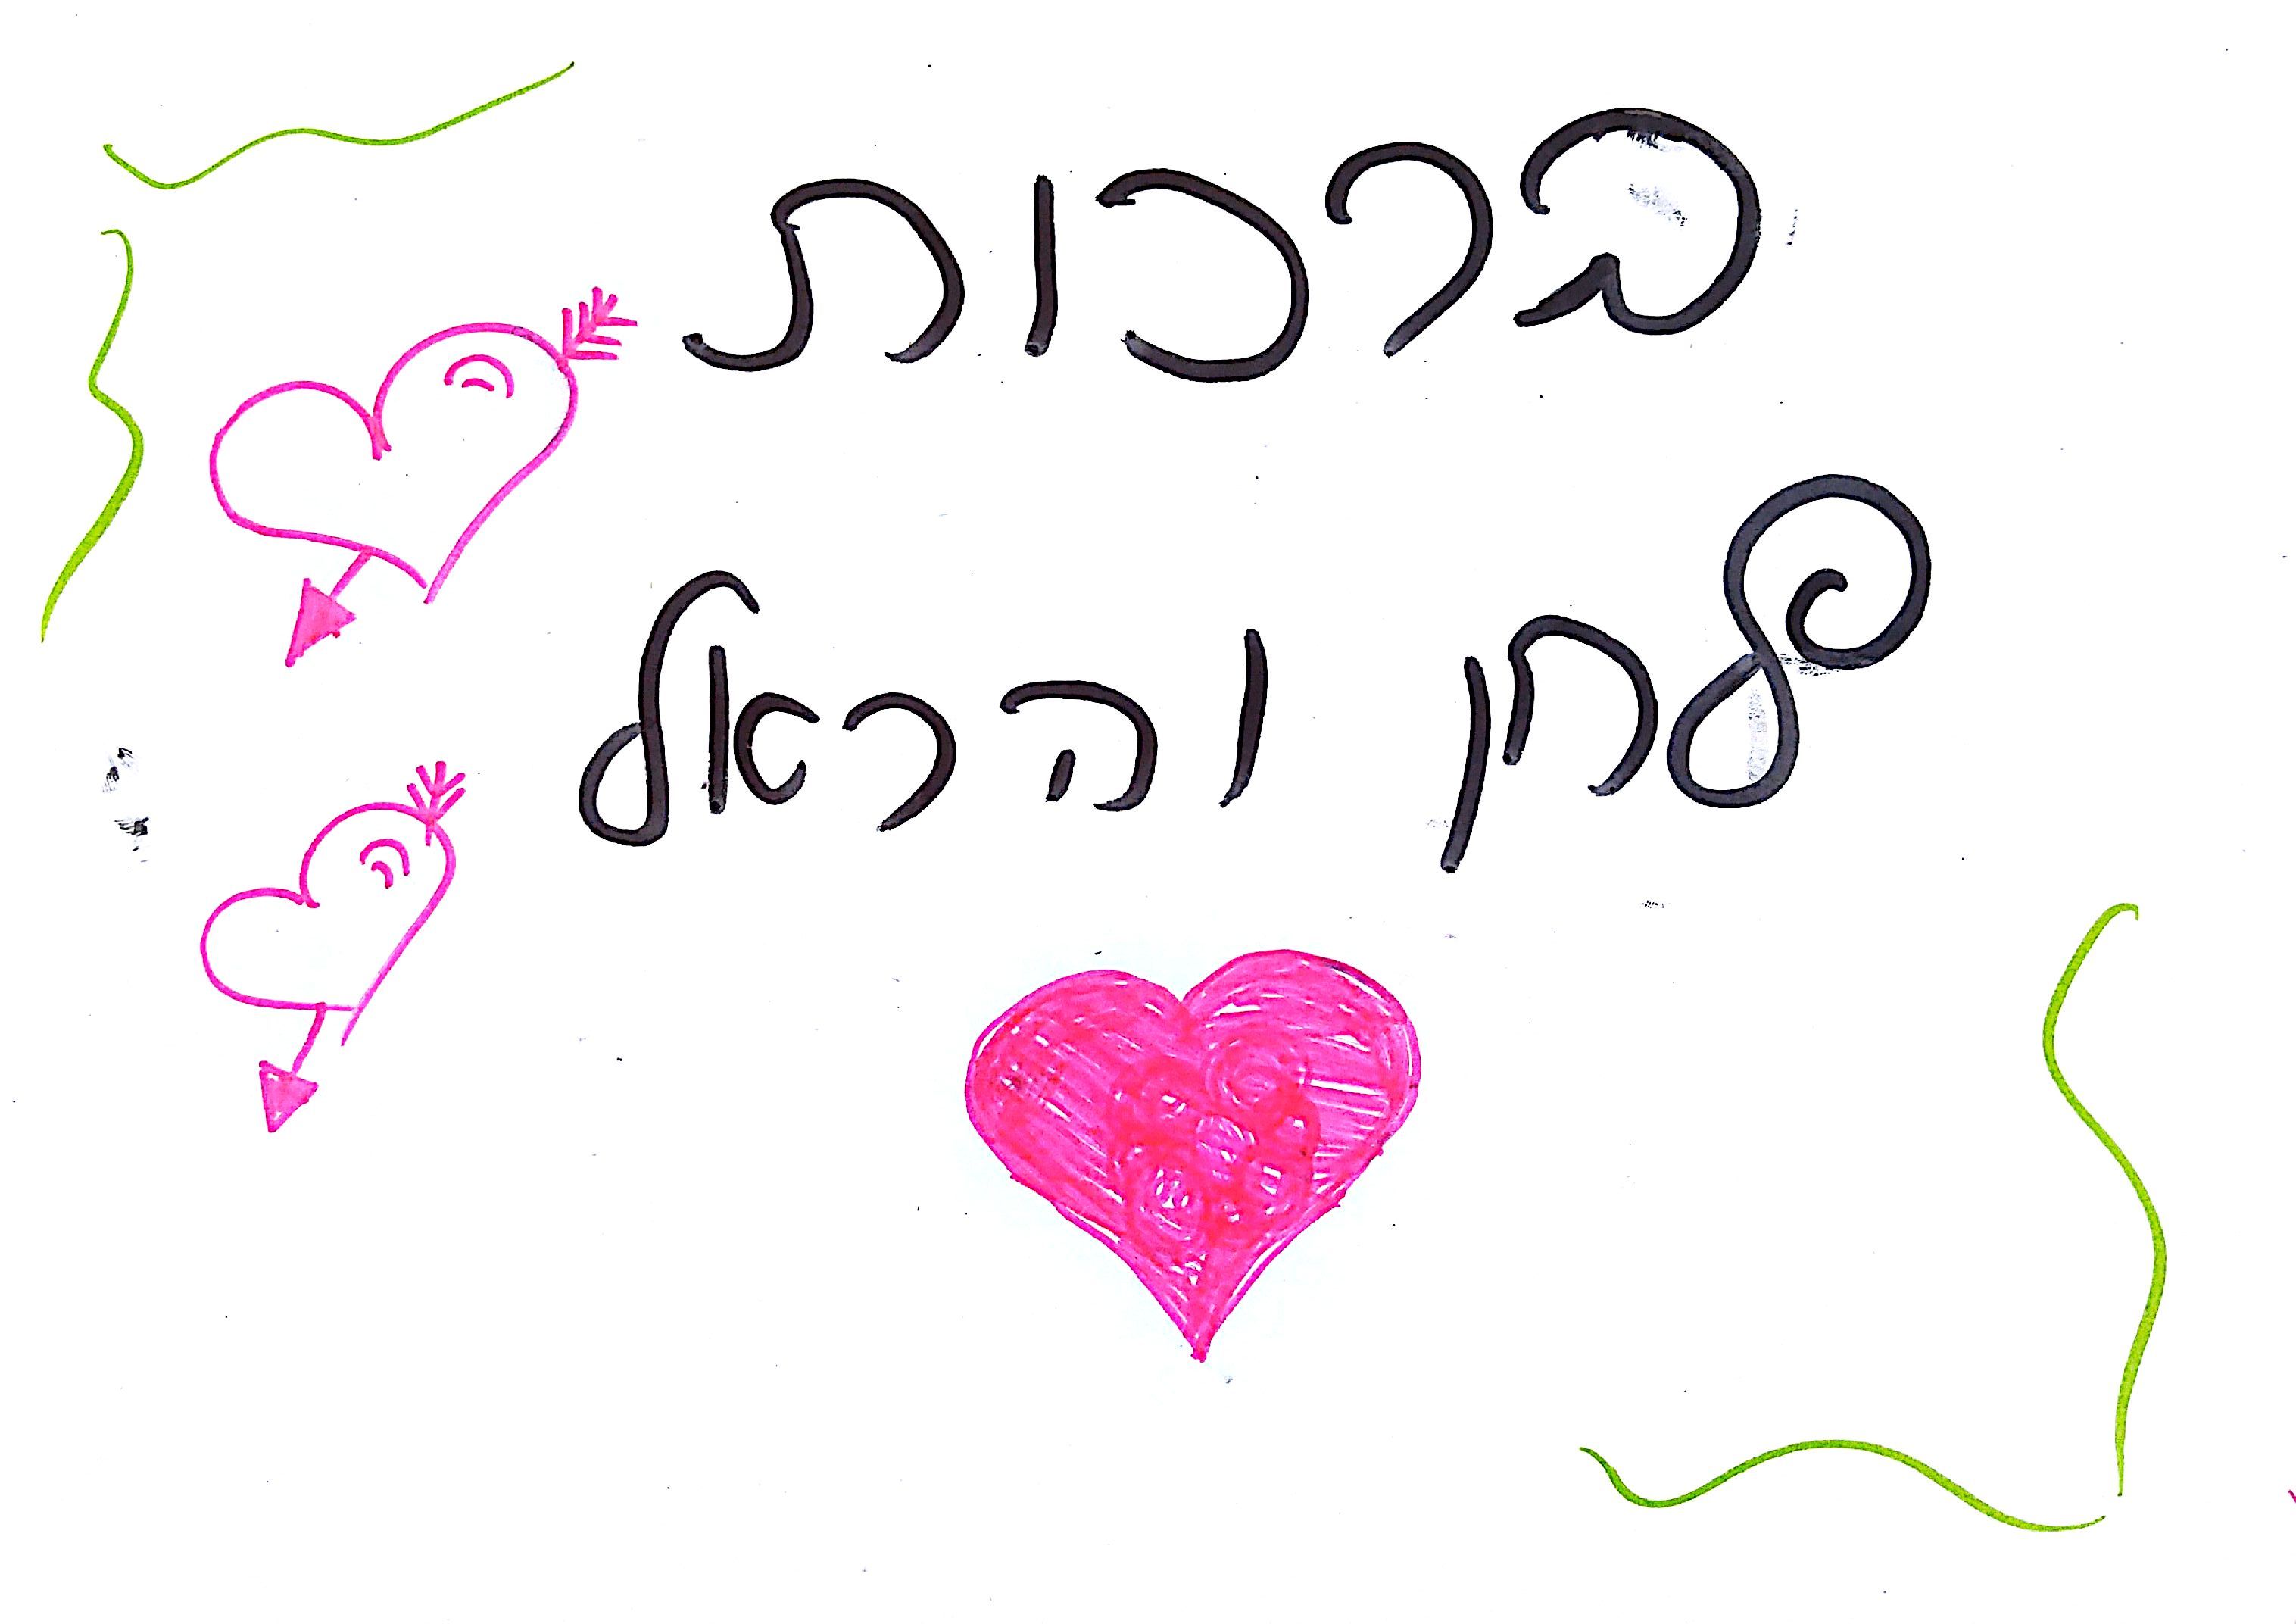 ברכות
של חן והראל